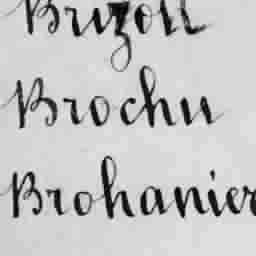 Brizou
Brochu
Brohanier